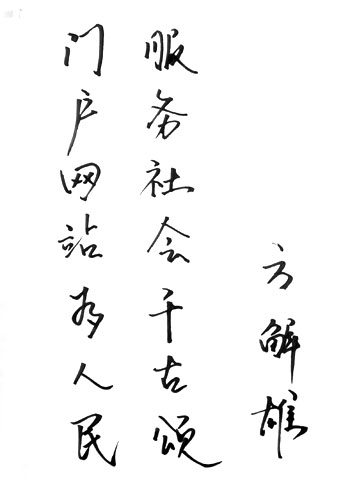 门户网站为人民
服务社会千古颂
方解雄